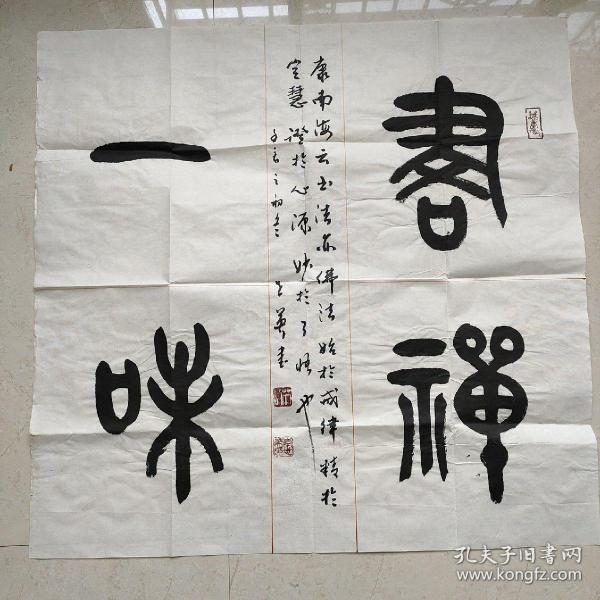 書禪
一味
康南海云书法亦佛法始於戒律精於
定慧證於心源妙於了悟也
之初冬
孔夫子旧書网
www.kongfz.com